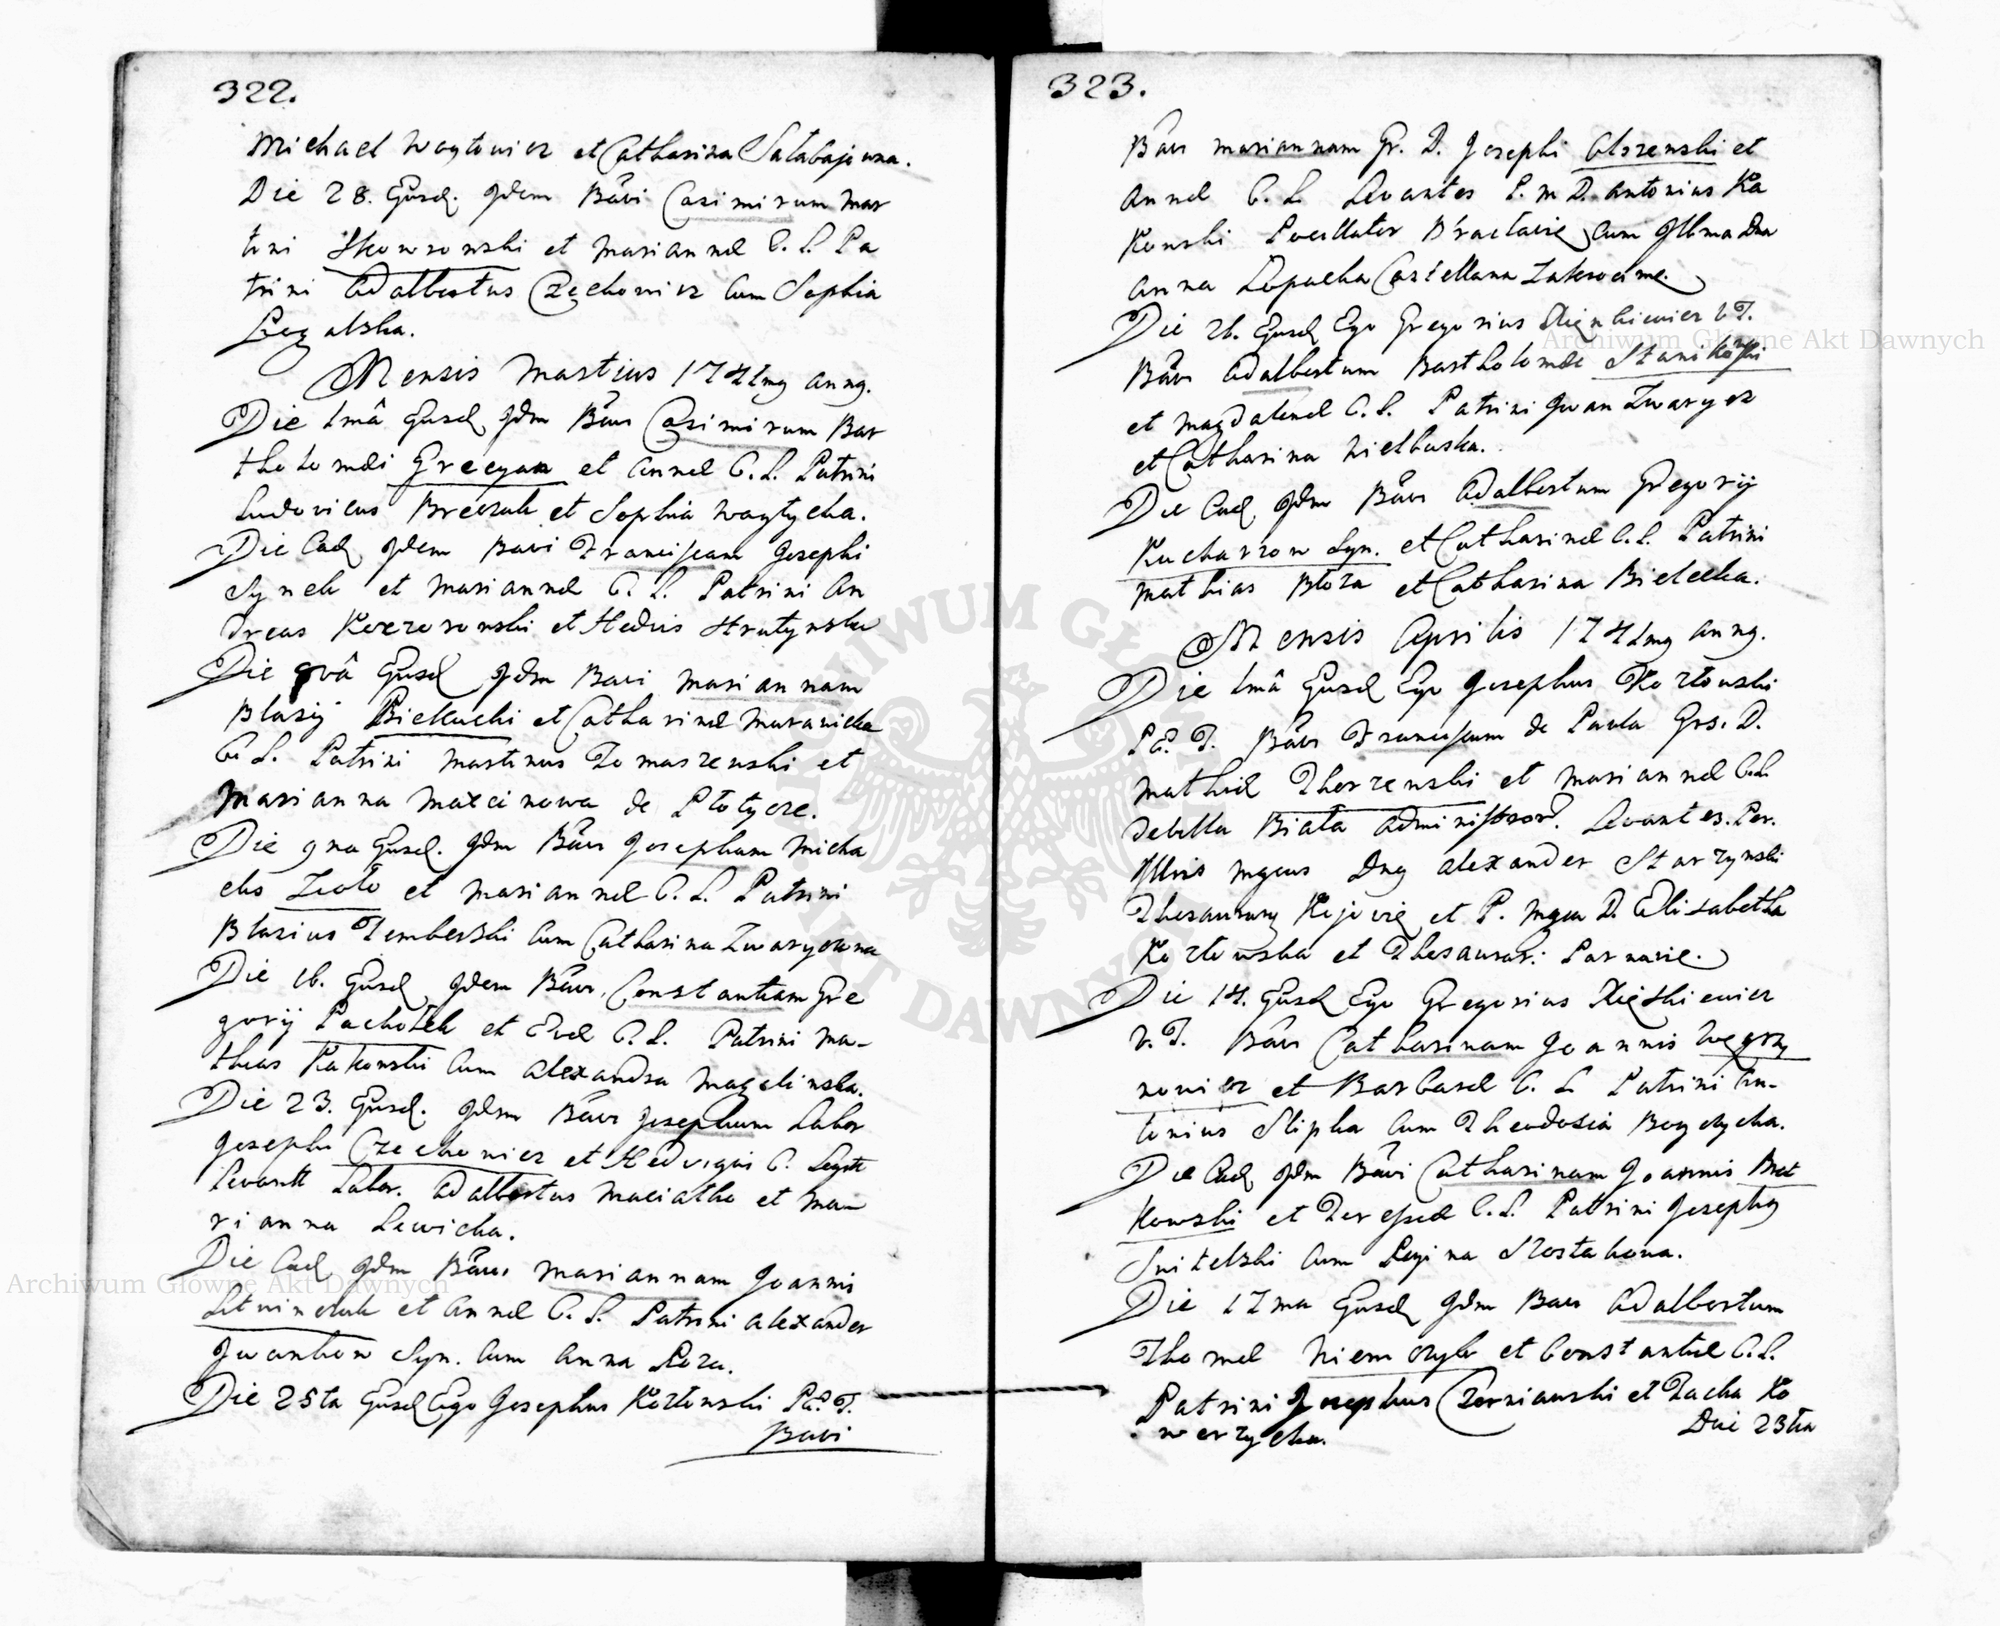 322.
Michael Woytowicz et Catharina Satabajowna.
Die 28. Ejusd. Idem Bâvi Casimirum Mar
tini Skowronski et Mariannæ C. L. Pa
trini Adalbertus Czechowicz Cum Sophia
Rogalska.
Mensis Martius 1741mg anng.
Die 1mâ Ejusd Idm Bâvi Casimirum Bar
tholomæi Grecyan et Annæ C. L. Patrini
Ludovicus Breczuk et Sophia Woytycha.
Die Ead Idem Bavi Franciscam Josephi
Synek et Mariannæ C. L. Patrini An
dreas Korzorowski et Hedvis Hrutynska
Die 8vâ Ejusd Idm Bavi Mariannam
Blasij Biekucki et Catharinæ Murawicka
C. L. Patrini Martinus Tomaszewski et
Marianna Marcinowa de Płotycze.
Die 9na Ejusd. Idm Bâvi Josepham Micha
elis et Mariannæ C. L. Patrini
Blasius Zemberski Cum Catharina Zwaryczowna
Die 16. Ejusd Idem Bâvi Constantiam Gre
gorij Pachołek et Evæ C. L. Patrini Ma-
thias Rakowski Cum Alexandra Magalinska.
Die 23. Ejusd. Idem Bâvi Josephum Labor
Josephi Czechowicz et Hedvigis C. Legit
Levant Labor. Adalbertus Maciatko et Ma-
rianna Lewicka.
Die Ead Idm Bâvi Mariannam Joannis
Litwinczuk et Annæ C. L. Patrini Alexander
Iwankow Syn. Cum Anna
Die 25ta Ejusd Ego Josephus Kozlowski P. T.
Bavi
323.
Bâvi Mariannam Gr. D. Josephi Olszenski et
Annæ C. L. Levantes P. M D. Antonius Ra
kowski Pocillator Braclaviæ Cum Illma Dna
Anna Łopacka Castellana Zakrocime.
Die 26. Ejusd Ego Gregorius V T.
Bâvi Adalbertum Bartholomæi
et Magdalenæ C. L. Patrini Iwan Zwarycz
et Catharina Wielbuska.
Die Ead Idm Bâvi Adalbertum Gregorij
Kucharzow Syn. et Catharinæ C. L. Patrini
Mathias Błoza et Catharina Bielecka.
Mensis Aprilis 1741mg anng.
Die 1mâ Ejusd Ego Josephus Kozlowski
P. T. Bâvi Franciscum de Paula Grs. D.
Mathiæ Thorzewski et Mariannæ C. L
de Villa Biała Administror. Levantes. Per.
Illris Mgcus Dng Alexander Starzynski
Thesaurarg Kijoviæ et P. Mgca D. Elisabetha
Kozlowska et Thesaurar: Parnavie.
Die 14. Ejusd Ego Gregorius
V. T. Bâvi Catharinam Joannis Wegrzy
nowicz et Barbaræ C. L Patrini An-
tonius Slipka Cum Theodosia
Die Ead Idm Bâvi Catharinam Joannis Brat
kowski et Teresæ C. L. Patrini Josephg
Switelski Cum Regina Szostakowa.
Die 17ma Ejusd Idm Bavi Adalbertum
Thomæ Niemczyk et Constantiæ C. L.
Patrini Josephus Czerniawski et Tacka Ko
werzycka.
Die 23tia
Archiwum Główne Akt Dawnych
Archiwum Główne Akt Dawnych
ARCHIWUM GŁÓWNE AKT DAWNYCH